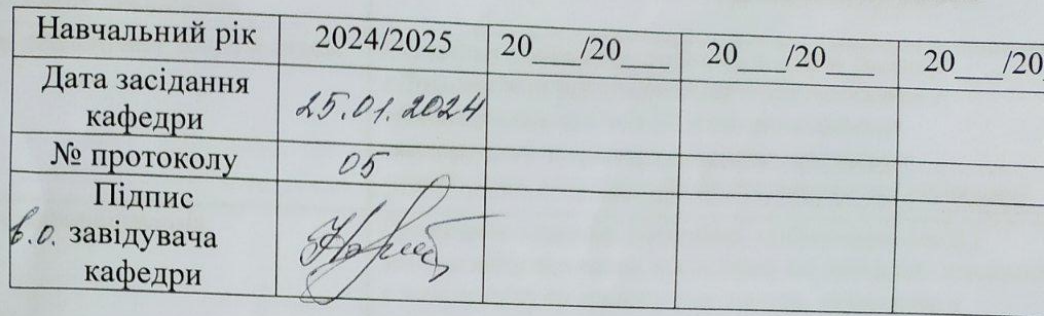 Навчальний рік 2024/2025 20___/20___ 20___/20___ 20___/20
Дата засідання
кафедри 25.01.2024
№ протоколу 05
Підпис
в.о. завідувача
кафедри